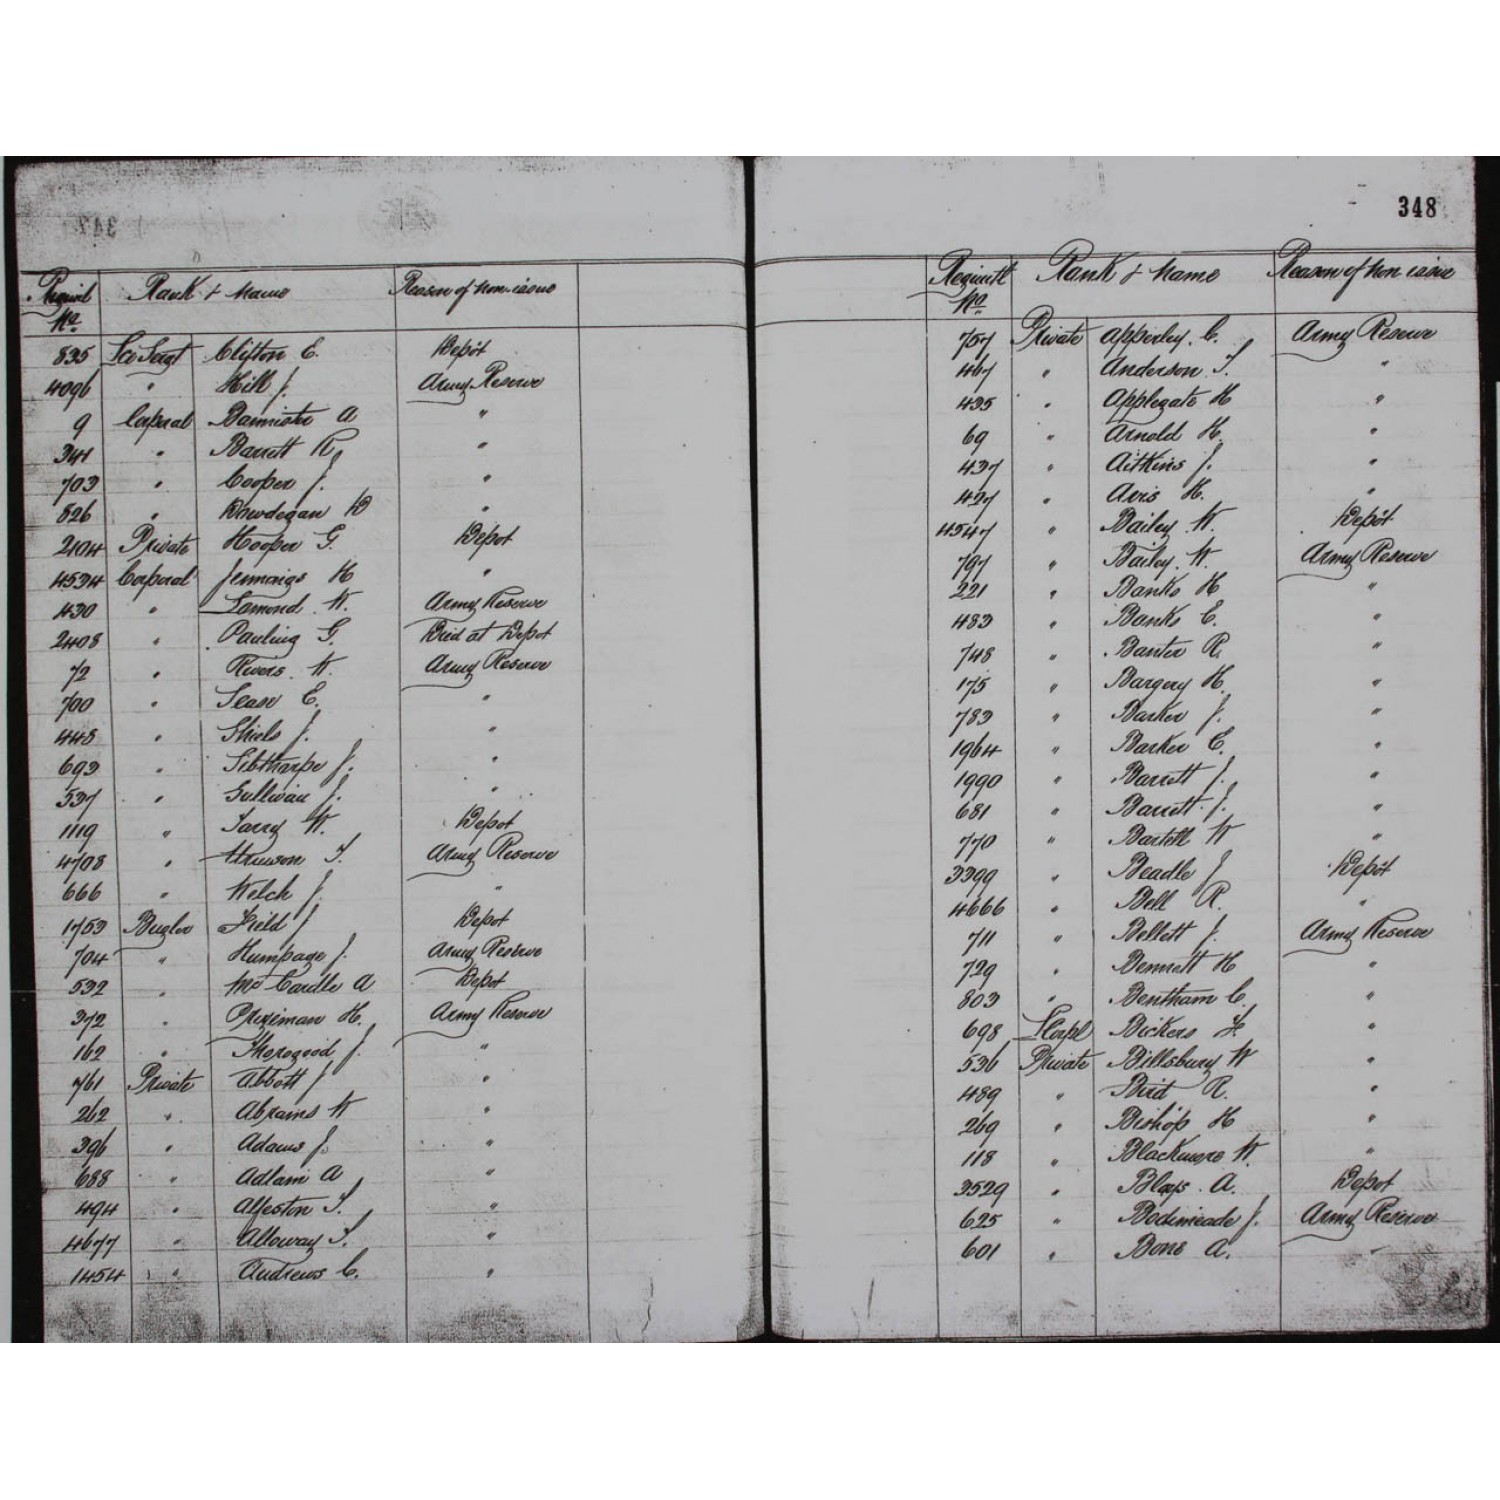 348
Regimtl No. Rank & Name Reason of Non-issue
835 Sergt Clifton E. Depôt
4096 " Hill J. Army Reserve
9 Corporal Bannister A "
341 " Barrett R "
703 " Cooper J. "
526 " "
2104 Private Hooper G. Depot
4534 Corporal Jennings H "
430 " Lomond W. Army Reserve
2408 " Pauling G. Died at Depôt
72 " Rivers. W. Army Reserve
700 " Sease E. "
448 " Shiels J. "
693 " Sibthorpe J. "
537 " Sullivan J. "
1119 " Tarry W. Depot
4708 " T. Army Reserve
666 " Welch J. "
1753 Bugler Field J Depot
704 " Humpage J. Army Reserve
532 " McCardle A Depot
372 " Prizeman H. Army Reserve
162 " Thorogood J. "
761 Private Abbott J "
262 " Abrams W "
396 " Adams J. "
688 " Adlam A "
494 " Alfeston T. "
4677 " Alloway T. "
1454 " Andrews C. "
Regimtl No. Rank & Name Reason of Non-issue
757 Private Apperley. C. Army Reserve
467 " Anderson. T. "
435 " Applegate H "
69 " Arnold H. "
437 " Aitkins J. "
427 " Avis H. "
4547 " Bailey. W. Depôt
797 " Bailey. W. Army Reserve
221 " Banks H "
483 " Banks E. "
748 " Banter R. "
175 " Bargery H. "
783 " Barker J. "
1964 " Barker C. "
1990 " Barrett J. "
681 " Barrett. J. "
770 " Bartell W "
3399 " Beadle J Depôt
4666 " Bell R. "
711 " Bellett J. Army Reserve
729 " Bennett H "
803 " Bentham C. "
698 L Corpl Bickers F. "
536 Private Billsbury W "
489 " Bird R. "
269 " Bishop H "
118 " Blackmore W. "
3529 " Blays. A. Depot
625 " Bodimeade J. Army Reserve
601 " Bone A. "